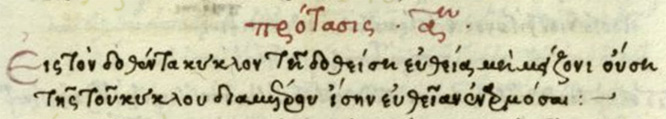 πρότασις αη
Εἰς τὸν δοθέντα κύκλον τῇ δοθείσῃ εὐθείᾳ μὴ μείζονι οὔσῃ
τῆς τοῦ κύκλου διαμέτρου ἴσην εὐθεῖαν ἐναρμόσαι :—